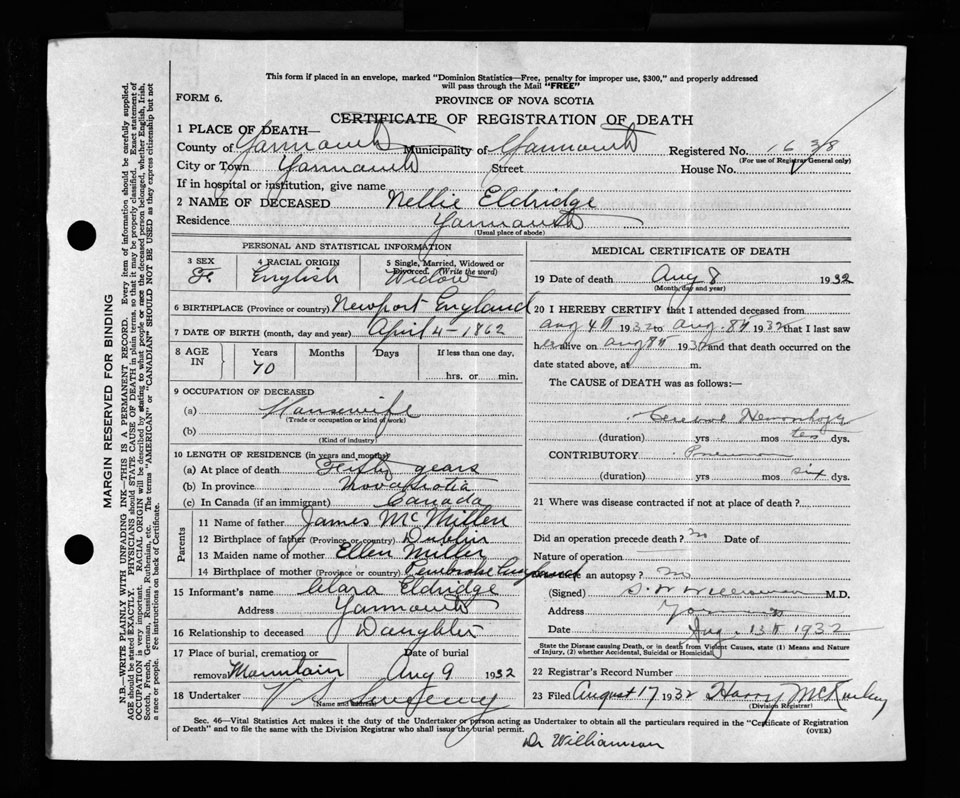 This form if placed in an envelope, marked "Dominion Statistics—Free, penalty for improper use, $300," and properly addressed
will pass through the Mail "FREE"
FORM 6.
PROVINCE OF NOVA SCOTIA
CERTIFICATE OF REGISTRATION OF DEATH
1 PLACE OF DEATH—
County of Yarmouth Municipality of Yarmouth Registered No.
(For use of Registrar General only)
City or Town Yarmouth Street House No.
If in hospital or institution, give name
2 NAME OF DECEASED Nellie Eldridge
Residence Yarmouth
(Usual place of abode)
PERSONAL AND STATISTICAL INFORMATION
3 SEX 4 RACIAL ORIGIN 5 Single, Married, Widowed or
Divorced. (Write the word)
F. English Widow
6 BIRTHPLACE (Province or country) Newport England
7 DATE OF BIRTH (month, day and year) April 4 - 1862
8 AGE IN Years Months Days If less than one day,
70
hrs. or min.
9 OCCUPATION OF DECEASED
(a) Housewife
(Trade or occupation or kind of work)
(b)
(Kind of industry)
10 LENGTH OF RESIDENCE (in years and months)
(a) At place of death Fifty years
(b) In province Nova Scotia
(c) In Canada (if an immigrant) Canada
Parents
11 Name of father James McMillen
12 Birthplace of father (Province or country) Dublin
13 Maiden name of mother Ellen Miller
14 Birthplace of mother (Province or country) Pembroke England
15 Informant's name Clara Eldridge
Address Yarmouth
16 Relationship to deceased Daughter
17 Place of burial, cremation or Date of burial
removal Mountain Aug 9 1932
18 Undertaker V S Sweeny
(Name and address)
MEDICAL CERTIFICATE OF DEATH
19 Date of death Aug 8 1932
(Month, day and year)
20 I HEREBY CERTIFY that I attended deceased from
Aug 4th 1932 to Aug. 8th 1932 that I last saw
her alive on Aug 8th 1932 and that death occurred on the
date stated above, at m.
The CAUSE of DEATH was as follows:—
Cerebral Hemorrhage
(duration) yrs mos ten dys.
CONTRIBUTORY Pneumonia
(duration) yrs mos six dys.
21 Where was disease contracted if not at place of death?
Did an operation precede death? no Date of
Nature of operation
Was there an autopsy? no
(Signed) S. W. Williamson M.D.
Address Yarmouth
Date Aug. 13th 1932
State the Disease causing Death, or in death from Violent Causes, state (1) Means and Nature
of Injury, (2) whether Accidental, Suicidal or Homicidal.
22 Registrar's Record Number
23 Filed August 17 1932 Harry McKinley
(Division Registrar)
Sec. 46—Vital Statistics Act makes it the duty of the Undertaker or person acting as Undertaker to obtain all the particulars required in the "Certificate of Registration
of Death" and to file the same with the Division Registrar who shall issue the burial permit. (OVER)
Dr Williamson
MARGIN RESERVED FOR BINDING
N.B.—WRITE PLAINLY WITH UNFADING INK—THIS IS A PERMANENT RECORD. Every item of information should be carefully supplied.
AGE should be stated EXACTLY. PHYSICIANS should STATE CAUSE OF DEATH in plain terms, so that it may be properly classified. Exact statement of
OCCUPATION is very important. RACIAL ORIGIN will be described by stating to what people or race the deceased person belonged, whether English, Irish,
Scotch, French, German, Russian, Ruthenian, etc. The terms "AMERICAN" or "CANADIAN" SHOULD NOT BE USED as they express citizenship but not
a race or people. Fee instructions on back of Certificate.